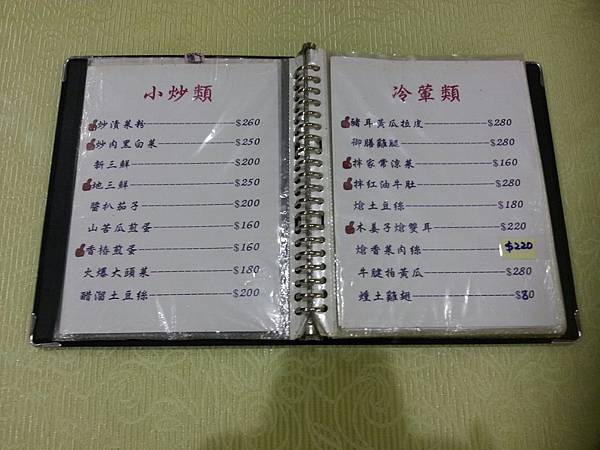 小炒類
炒漬菜粉 $260
炒肉黑白菜 $250
新三鮮 $200
地三鮮 $250
醬扒茄子 $200
山苦瓜煎蛋 $160
香椿煎蛋 $160
火爆大頭菜 $180
醋溜土豆絲 $200
冷葷類
豬耳黃瓜拉皮 $280
御膳雞腿 $280
拌家常涼菜 $160
拌紅油牛肚 $280
熗土豆絲 $180
木姜子熗雙耳 $220
熗香菜肉絲 $220
牛腱拍黃瓜 $280
燻土雞翅 $80